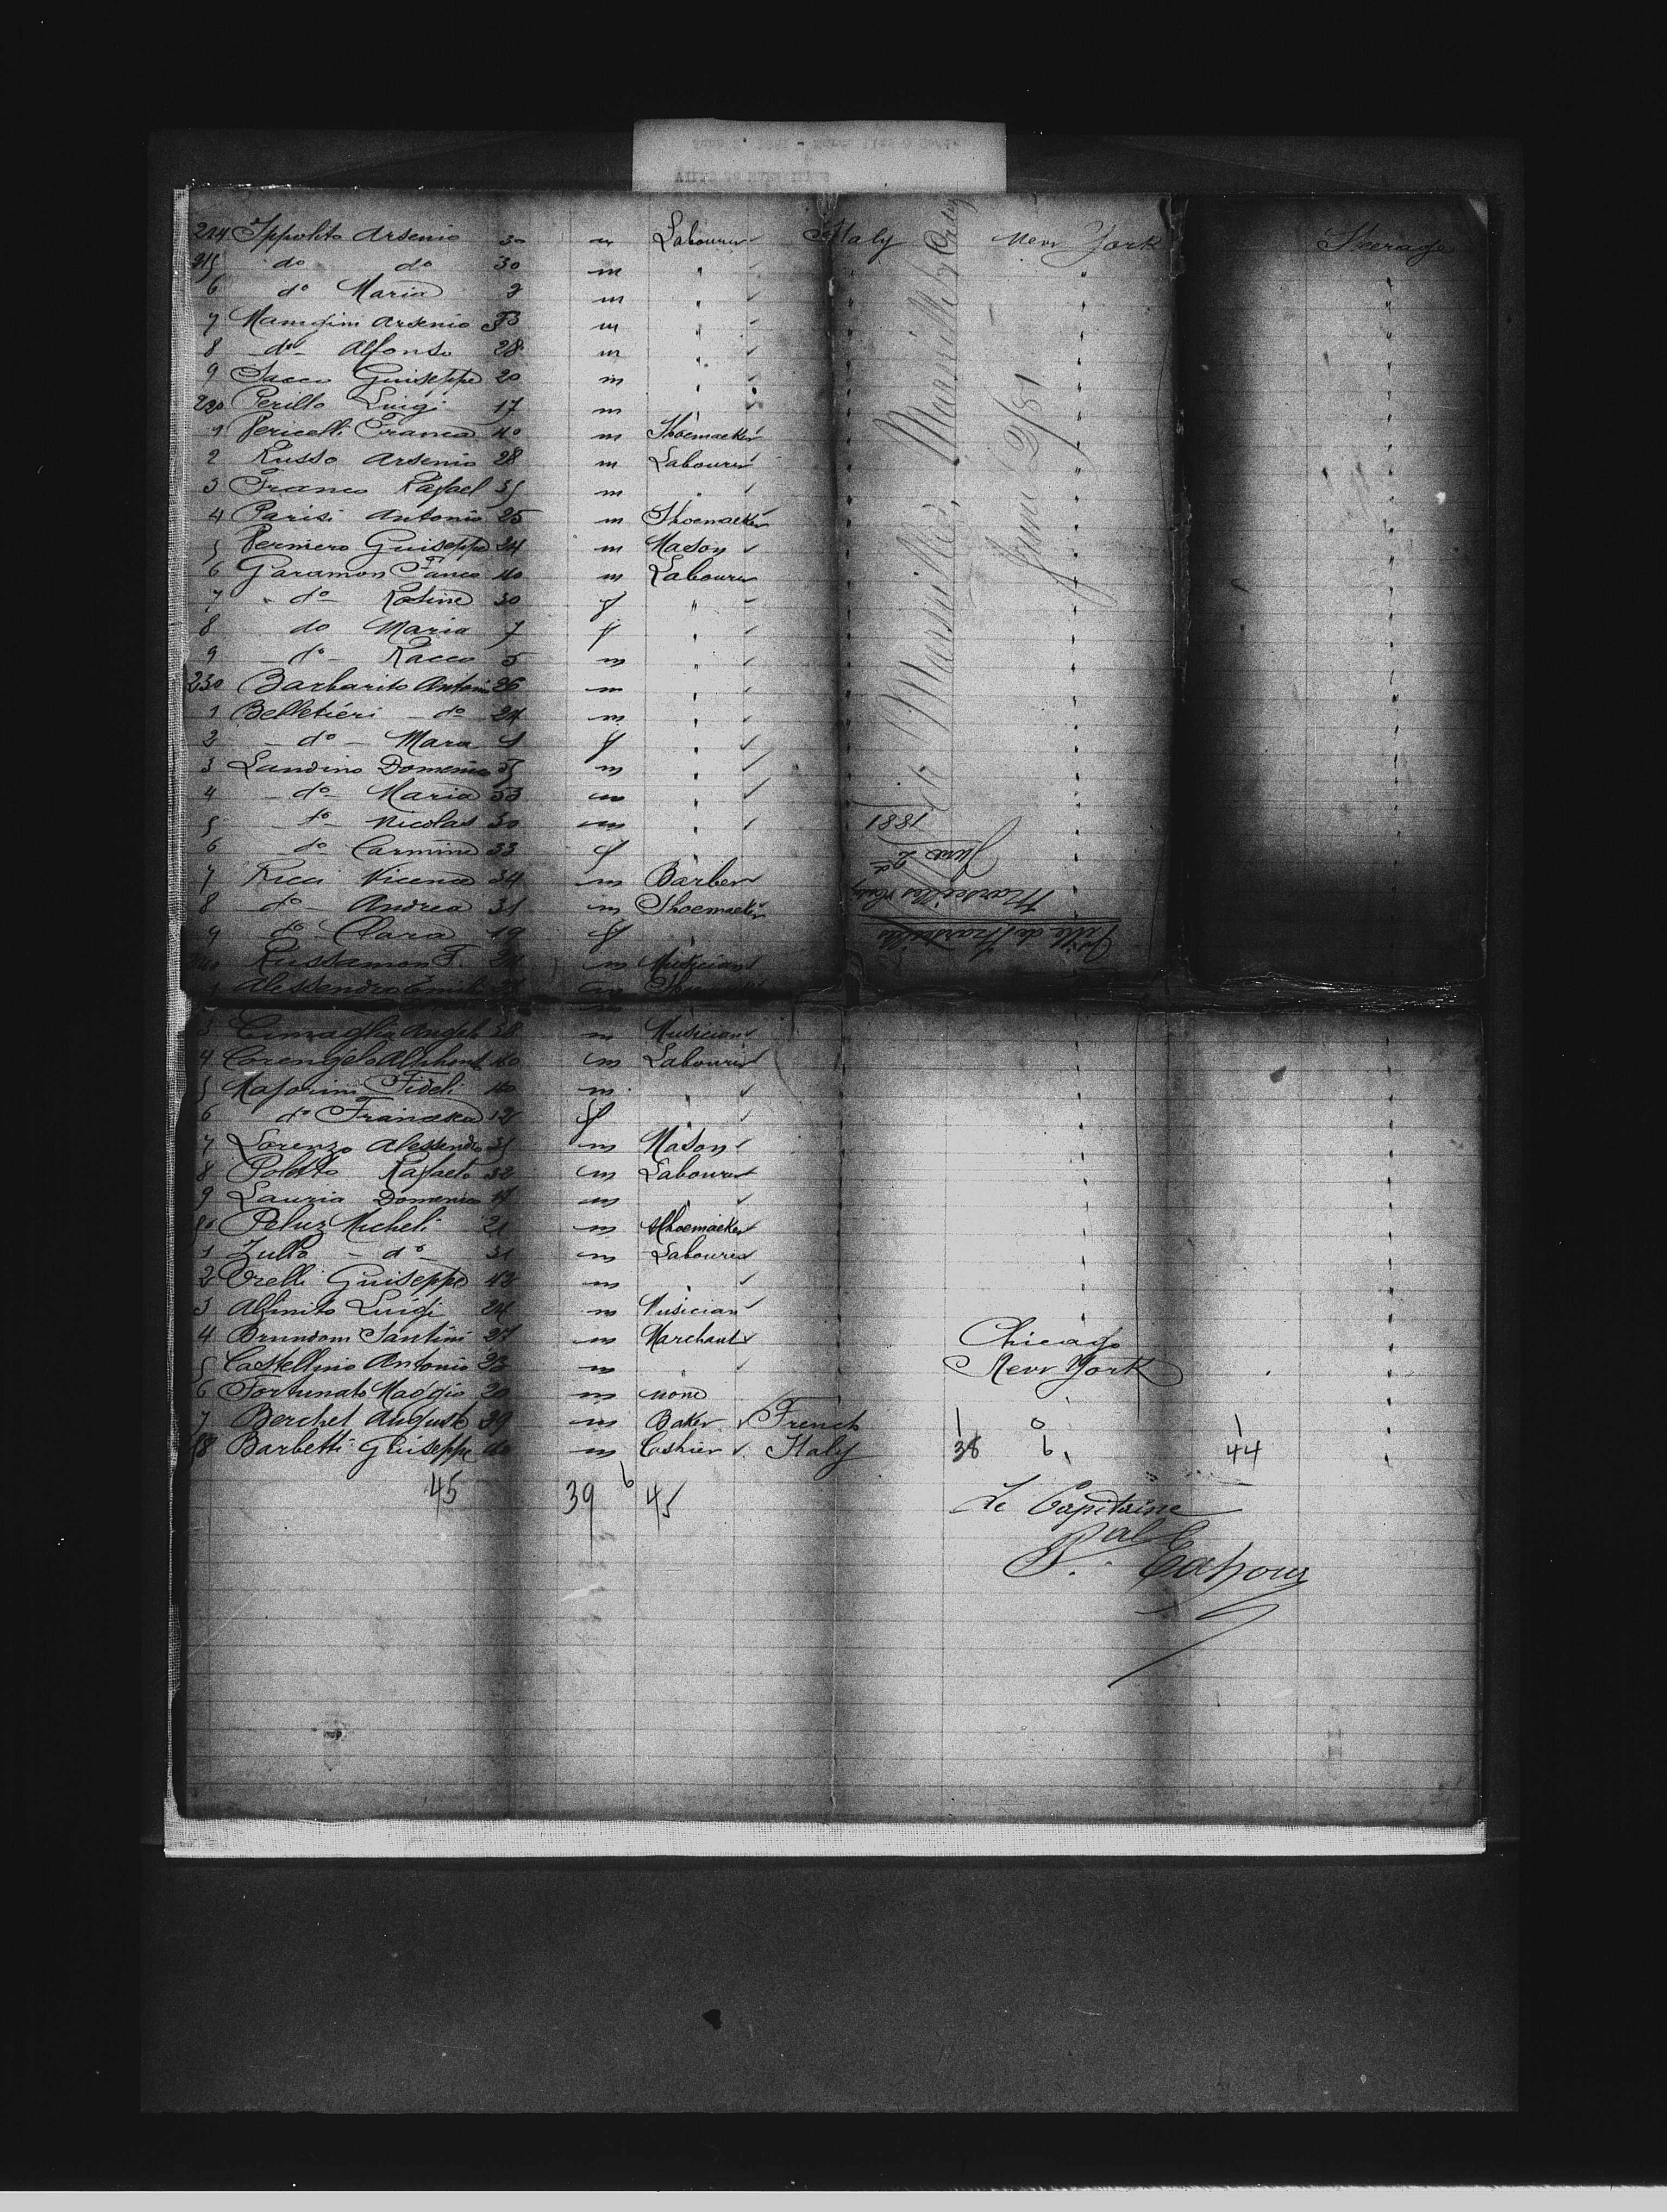 214 Ippolito Arsenio 30 m Labourer Italy New York Steerage
215 do do 30 m "
6 do Maria 9 m "
7 Arsenio m "
8 do Alfonso 28 m "
9 Sacco Guiseppe 20 m "
220 Perillo Luigi 17 m "
1 Pericelli Franco 40 m Shoemacker
2 Russo Arsenio 28 m Labourer
3 Franco Rafael 35 m "
4 Parisi Antonio 25 m Shoemacker
5 Perniero Guiseppe 24 m Mason
6 Garamon Franco 40 m Labourer
7 do Rosine 30 f "
8 do Maria 7 f "
9 do Racco 5 m "
230 Barbarito Antonio 26 m "
1 Belletiéri do 24 m "
2 do Mara 1 f "
3 Landino Domenico 35 m "
4 do Maria 53 m "
5 do Nicolas 30 m "
6 do Carmine 33 f "
7 Ricci Vicence 34 m Barber
8 do Andrea 31 m Shoemacker
9 do Clara 19 f "
240 Russamon F. 24 m Musician
1 Alessendro m
3 m Musician
4 40 m Labourer
5 Majorini Fideli 40 m "
6 do Franciska 12 f "
7 Lorenzo Alessendro 35 m Mason
8 Poletto Rafaelo 32 m Labourer
9 Lauria Domenico m "
50 Peluz Micheli 21 m Shoemacker
1 Zullo do 31 m Labourer
2 Orelli Guiseppe 42 m "
3 Alfinito Luigi 24 m Musician
4 Brundom Santini 27 m Marchant Chicago
5 Castellino Antonio 23 m " New York
6 Fortunato Maggio 20 m none
7 Berchet Auguste 39 m Baker French 1 0 1
58 Barbetti Guiseppe 40 m Cashier Italy 38 6 44
45 39 6 45
Le Capitaine
Marseilles
June 2/81
Ville de Marseilles
June 2nd
1881